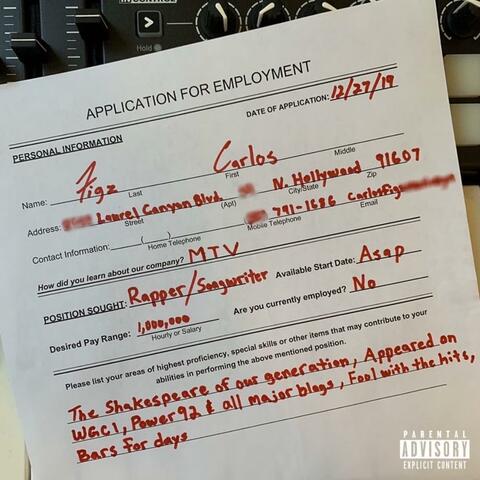 Hold
APPLICATION FOR EMPLOYMENT
PERSONAL INFORMATION DATE OF APPLICATION: 12/27/19
Name: Figz Carlos
Last First Middle
Address: Laurel Canyon Blvd. N. Hollywood 91607
Street (Apt) City/State Zip
Contact Information: ( ) 791-1686 Carlosfig
Home Telephone Mobile Telephone Email
How did you learn about our company? MTV
POSITION SOUGHT: Rapper/Songwriter Available Start Date: Asap
Desired Pay Range: 1,000,000 Are you currently employed? No
Hourly or Salary
Please list your areas of highest proficiency, special skills or other items that may contribute to your
abilities in performing the above mentioned position.
The Shakespeare of our generation, Appeared on
WGCI, Power92 & all major blogs, Fool with the hits,
Bars for days
PARENTAL
ADVISORY
EXPLICIT CONTENT